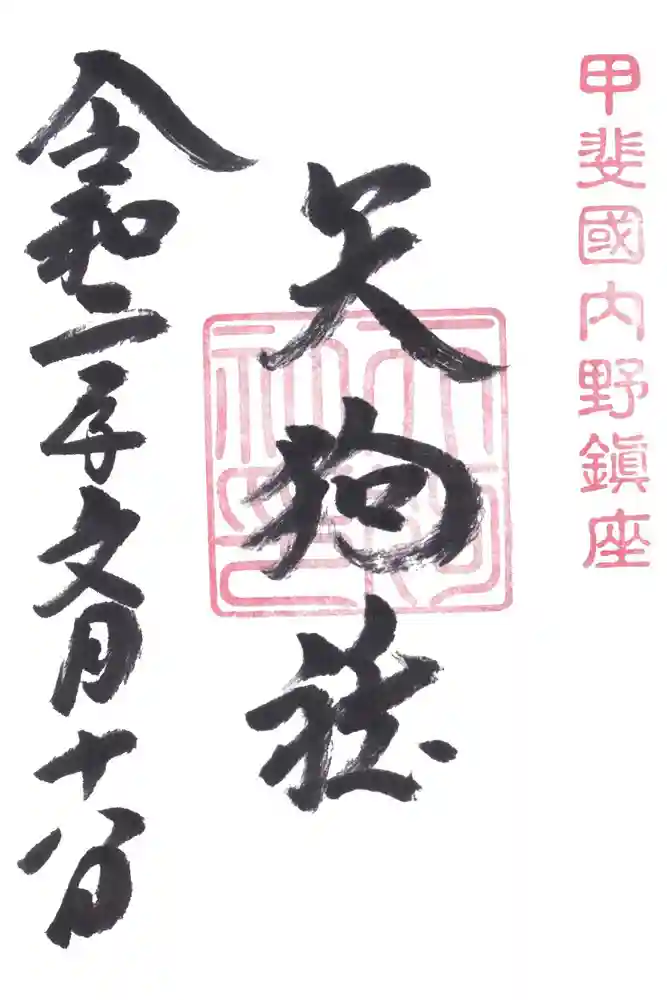 甲斐國内野鎭座
天狗社
令和二年文月十八日